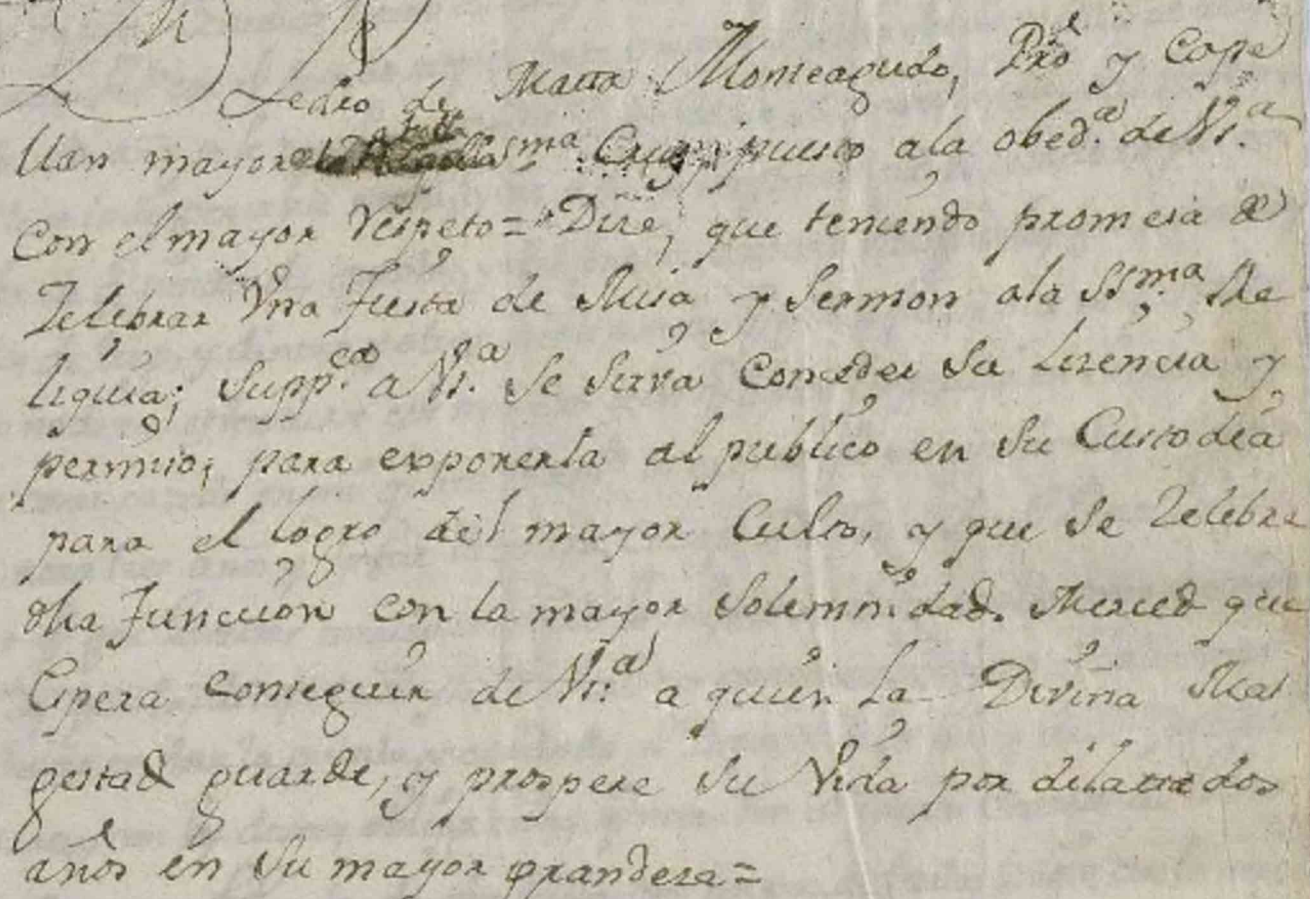 Pedro de Mata Monteagudo, Pro y Cape
llan mayor de la Ssma Cruz puesto ala obeda. de V.Sa.
con el mayor respeto = Dize, que teniendo promesa de
Zelebrar Vna Fiesta de Misa y Sermon ala SSma Re
liquia; Suppca. a V.Sa. se sirva conceder su Lizencia y
permiso; para exponerla al publico en su Custodia
para el logro del mayor Culto, y que se Zelebre
dha Funcion con la mayor Solemnidad. Merced que
Espera conseguir de V.Sa. a quien La Divina Mai
gestad guarde, y prospere su Vida por dilatados
años en su mayor grandeza =